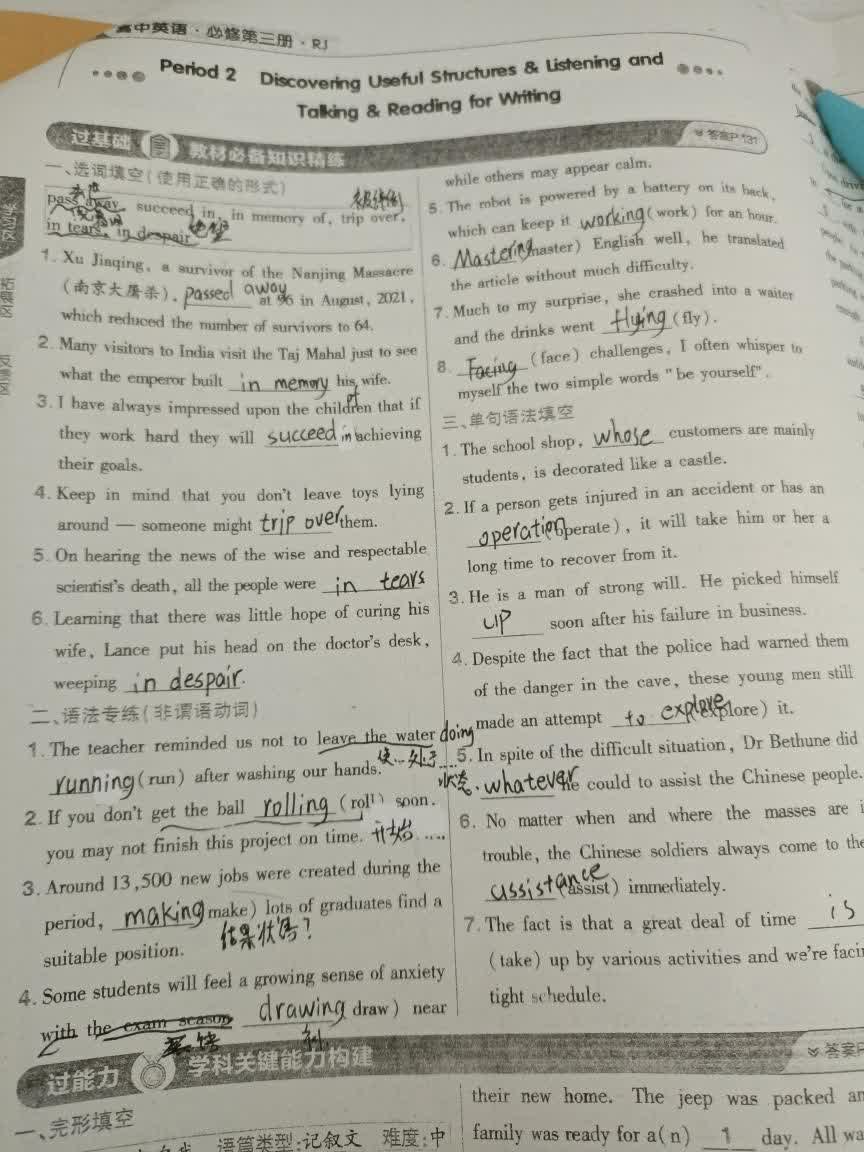 高中英语·必修第三册·RJ
Period 2 Discovering Useful Structures & Listening and
Talking & Reading for Writing
过基础 教材必备知识精练
答案P131
一、选词填空(使用正确的形式)
pass away, succeed in, in memory of, trip over,
in tears, in despair 绝望
1. Xu Jiaqing, a survivor of the Nanjing Massacre
(南京大屠杀), passed away at 96 in August, 2021,
which reduced the number of survivors to 64.
2. Many visitors to India visit the Taj Mahal just to see
what the emperor built in memory of his wife.
3. I have always impressed upon the children that if
they work hard they will succeed in achieving
their goals.
4. Keep in mind that you don't leave toys lying
around — someone might trip over them.
5. On hearing the news of the wise and respectable
scientist's death, all the people were in tears
6. Learning that there was little hope of curing his
wife, Lance put his head on the doctor's desk,
weeping in despair.
二、语法专练(非谓语动词)
1. The teacher reminded us not to leave the water doing
running (run) after washing our hands. 使…处于…状态.
2. If you don't get the ball rolling (roll) soon,
you may not finish this project on time. 开始……
3. Around 13,500 new jobs were created during the
period, making (make) lots of graduates find a
suitable position. 结果状语?
4. Some students will feel a growing sense of anxiety
with the exam season drawing (draw) near
while others may appear calm.
5. The robot is powered by a battery on its back,
which can keep it working (work) for an hour.
6. Mastering (master) English well, he translated
the article without much difficulty.
7. Much to my surprise, she crashed into a waiter
and the drinks went flying (fly).
8. Facing (face) challenges, I often whisper to
myself the two simple words "be yourself".
三、单句语法填空
1. The school shop, whose customers are mainly
students, is decorated like a castle.
2. If a person gets injured in an accident or has an
operation (operate), it will take him or her a
long time to recover from it.
3. He is a man of strong will. He picked himself
up soon after his failure in business.
4. Despite the fact that the police had warned them
of the danger in the cave, these young men still
made an attempt to explore (explore) it.
5. In spite of the difficult situation, Dr Bethune did
whatever he could to assist the Chinese people.
6. No matter when and where the masses are i
trouble, the Chinese soldiers always come to the
assistance (assist) immediately.
7. The fact is that a great deal of time is
(take) up by various activities and we're faci
tight schedule.
过能力 学科关键能力构建
答案P
一、完形填空
语篇类型:记叙文 难度:中
their new home. The jeep was packed an
family was ready for a(n) 1 day. All wa